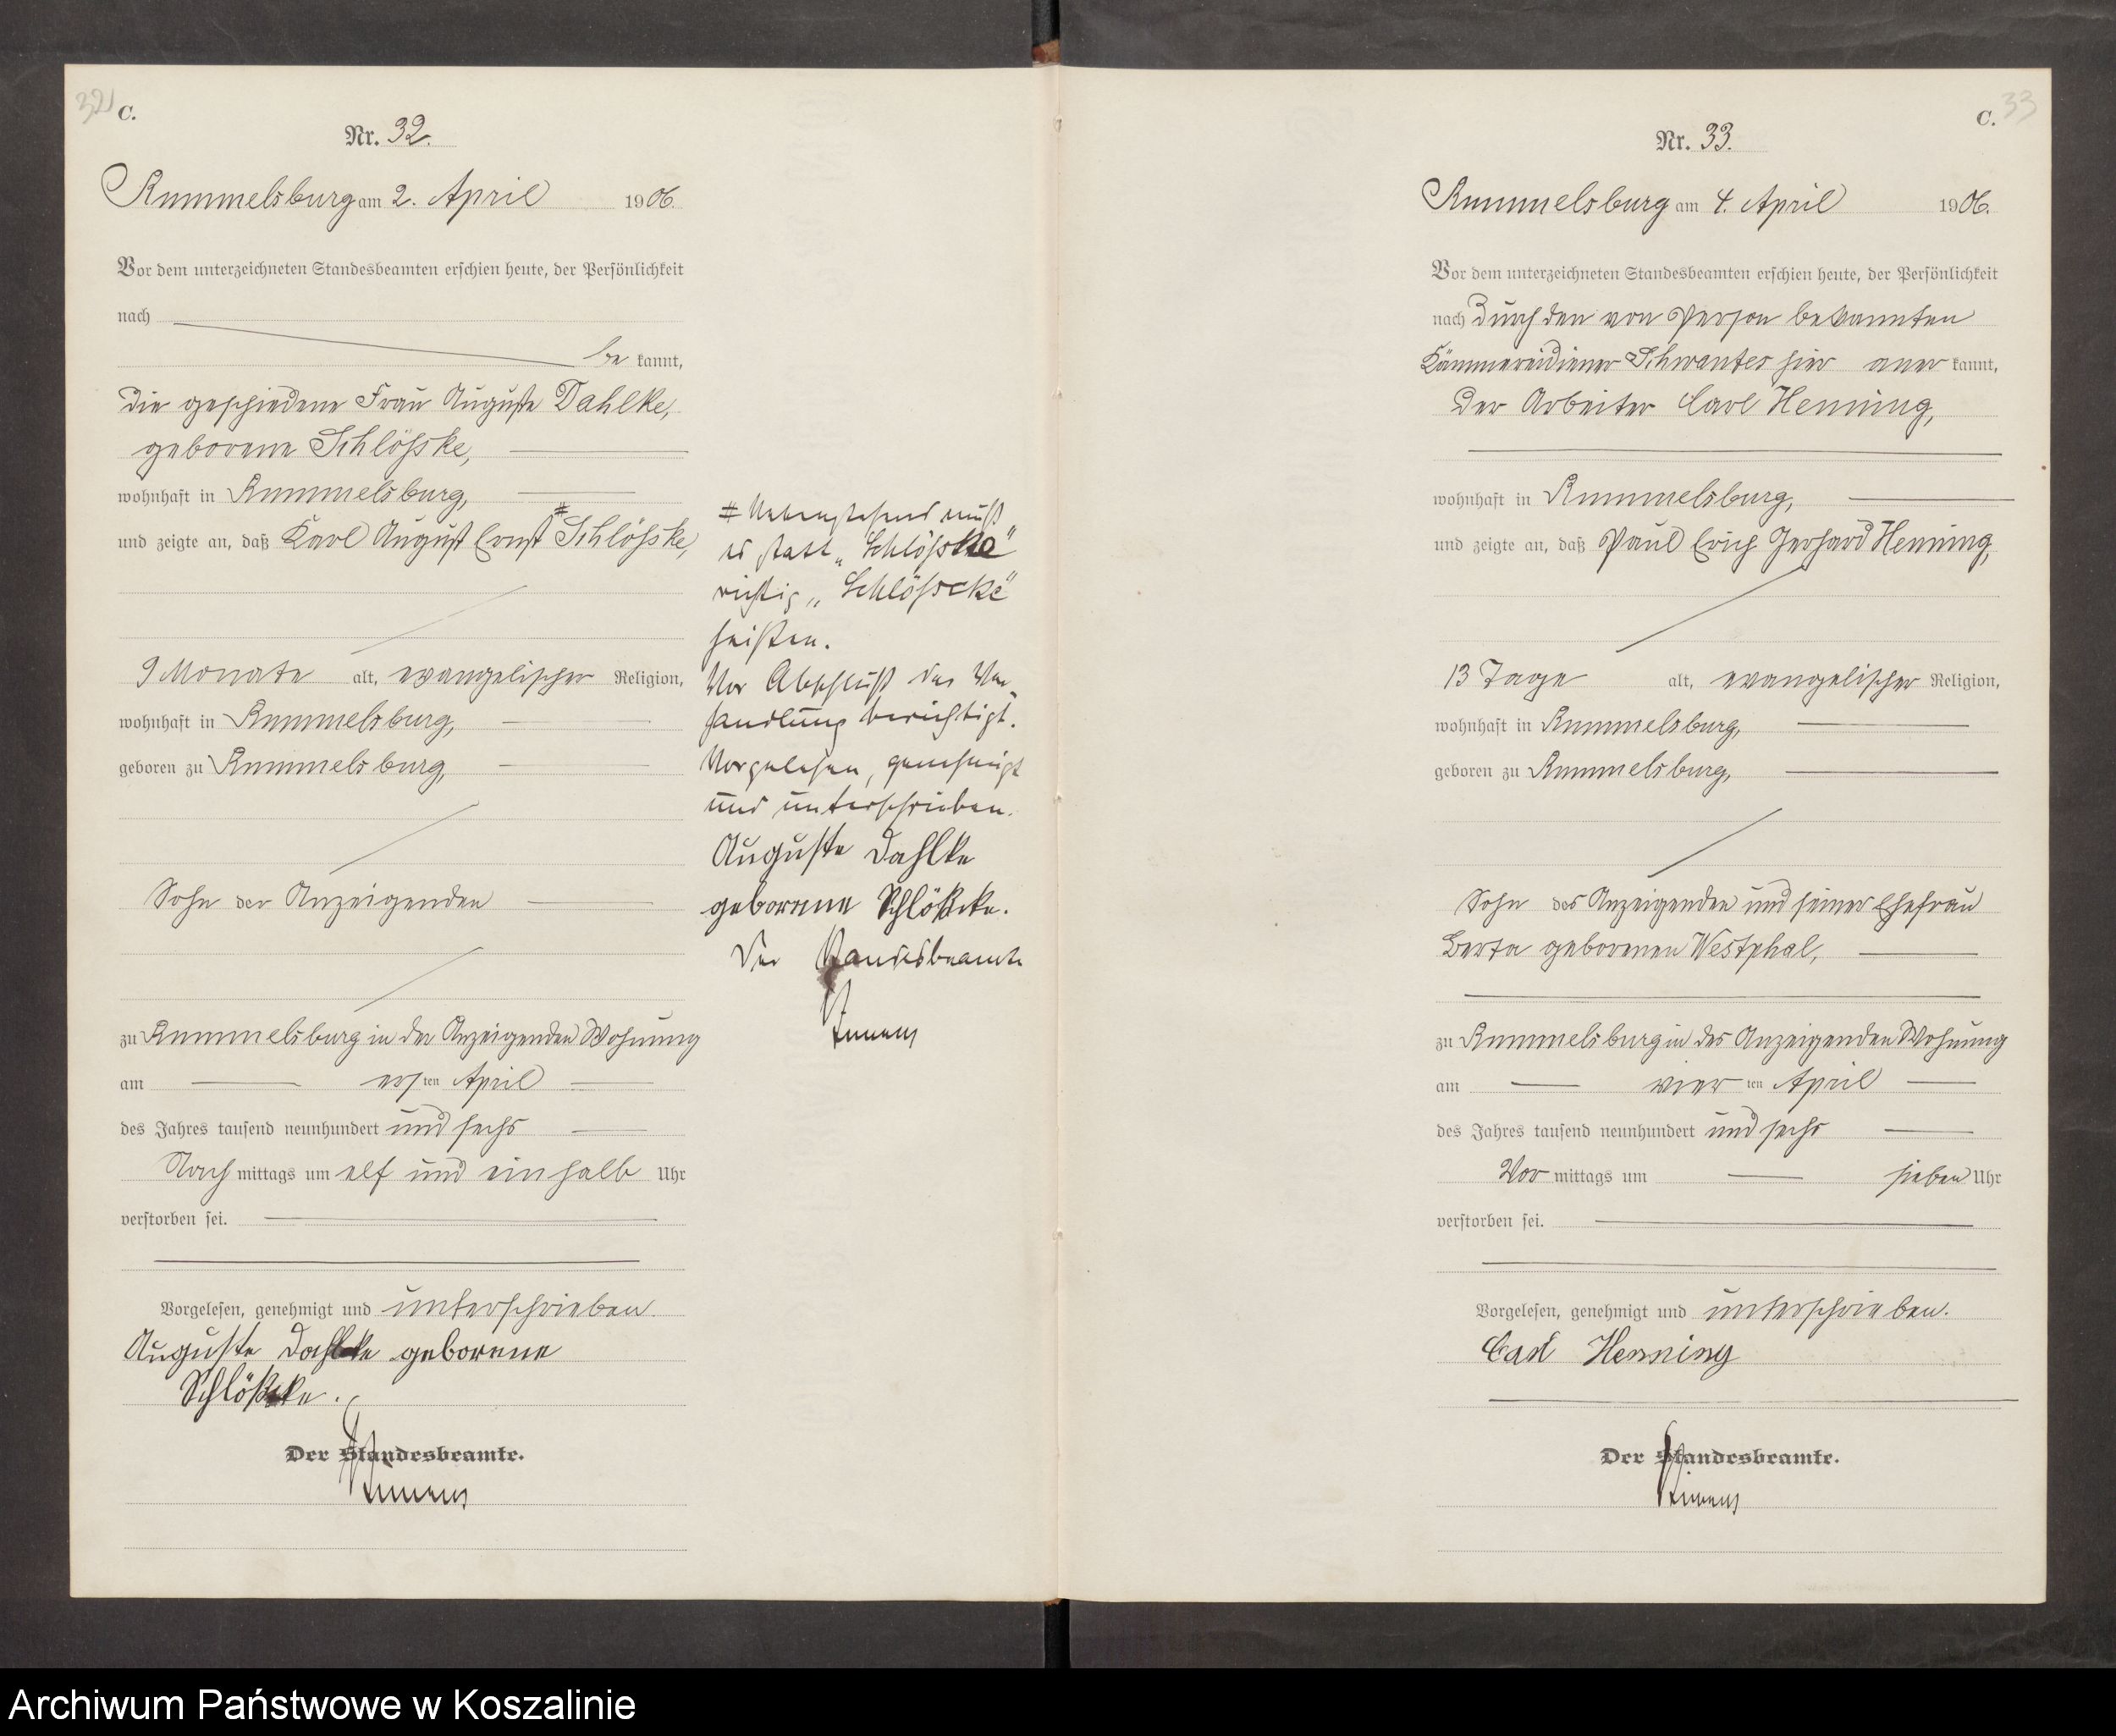 32
C.
Nr. 32.
Rummelsburg am 2. April 1906.
Vor dem unterzeichneten Standesbeamten erschien heute, der Persönlichkeit
nach
be kannt,
die geschiedene Frau Auguste Dahlke,
geborene Schlößske,
wohnhaft in Rummelsburg,
und zeigte an, daß Karl August Ernst # Schlößske,
9 Monate alt, evangelischer Religion,
wohnhaft in Rummelsburg,
geboren zu Rummelsburg,
Sohn der Anzeigenden
zu Rummelsburg in der Anzeigenden Wohnung
am ersten April
des Jahres tausend neunhundert und sechs
Nachmittags um elf und ein halb Uhr
verstorben sei.
Vorgelesen, genehmigt und unterschrieben.
Auguste Dahlke geborene
Schlößcke.
Der Standesbeamte.
# Nebenstehend muß
es statt „Schlößske"
richtig „Schlößscke"
heißen.
Vor Abschluß der Ver-
handlung berichtigt.
Vorgelesen, genehmigt
und unterschrieben.
Auguste Dahlke
geborene Schlößcke.
Der Standesbeamte
33
C.
Nr. 33.
Rummelsburg am 4. April 1906.
Vor dem unterzeichneten Standesbeamten erschien heute, der Persönlichkeit
nach durch den von Person bekannten
Kämmereidiener Schwantes hier aner kannt,
der Arbeiter Carl Henning,
wohnhaft in Rummelsburg,
und zeigte an, daß Paul Erich Gerhard Henning,
13 Tage alt, evangelischer Religion,
wohnhaft in Rummelsburg,
geboren zu Rummelsburg,
Sohn des Anzeigenden und seiner Ehefrau
Berta geborenen Westphal,
zu Rummelsburg in des Anzeigenden Wohnung
am vierten April
des Jahres tausend neunhundert und sechs
Vormittags um sieben Uhr
verstorben sei.
Vorgelesen, genehmigt und unterschrieben.
Carl Henning
Der Standesbeamte.
Archiwum Państwowe w Koszalinie